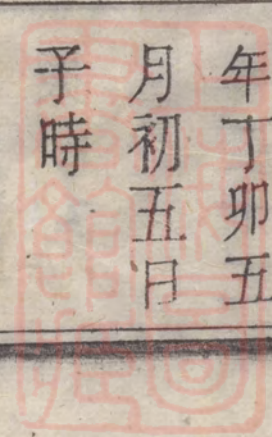 年丁卯五
月初五日
子時